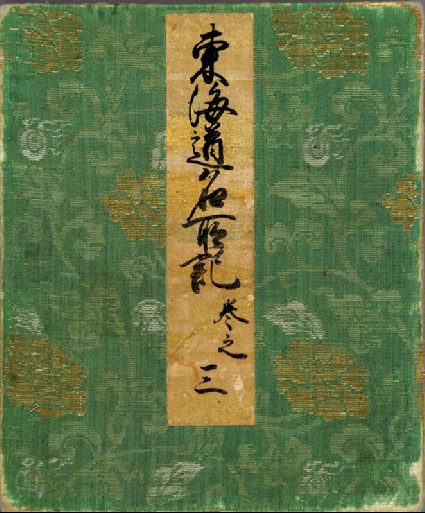 東海道名所記 巻之三